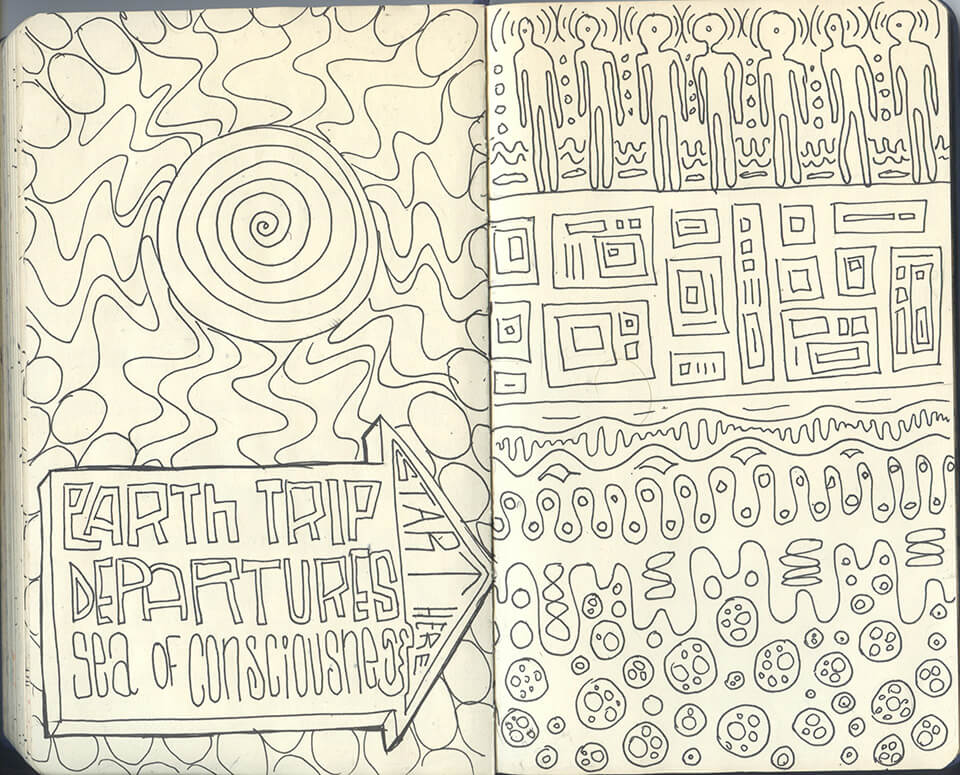 eARTh TRIP
DEPARTURES
Sea OF consciousness
START HERE